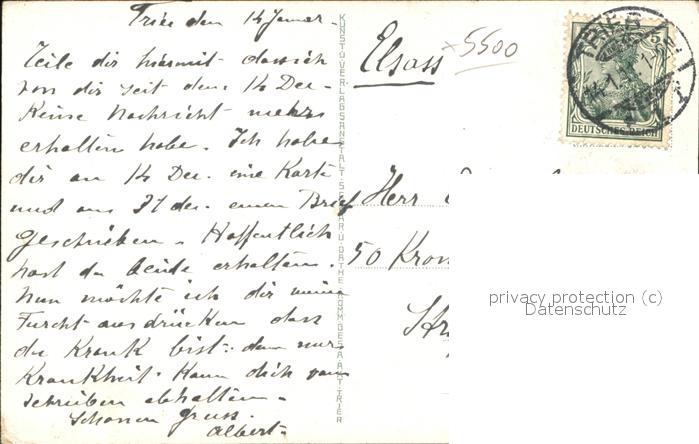 Trier den 14 Januar.
Teile dir hiermit dass ich
von dir seit dem 14 Dec.
Keine Nachricht mehr
erhalten habe. Ich habe
dir am 14 Dec. eine Karte
und am 31 dec. einen Brief
geschrieben. Hoffentlich
hast du beide erhalten.
Nun möchte ich dir meine
Furcht ausdrücken dass
du Krank bist: denn nur
Krankheit Kann dich vom
schreiben abhalten.
Schönen gruss.
Albert.
KUNST U. VERLAGSANSTALT SCHAAR U. DATHE KOMM. GES. A. AKT. TRIER
Elsass
5500
TRIER
14.1.
DEUTSCHES REICH
Herr
50 Kron
Str
privacy protection (c)
Datenschutz